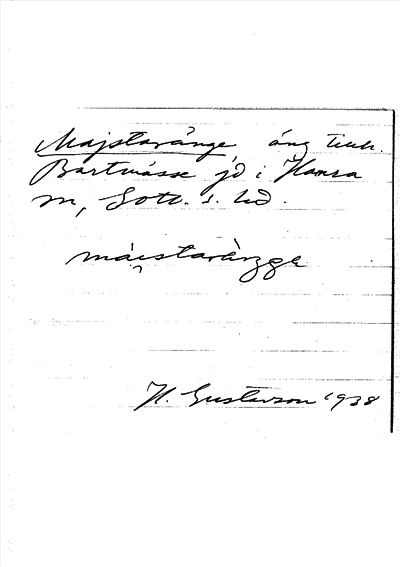 Majstaränge, äng tillh.
Bartnässe jd i Hamra
sn, Gotl. s. hd.
máistaràŋge
H. Gustavson 1938